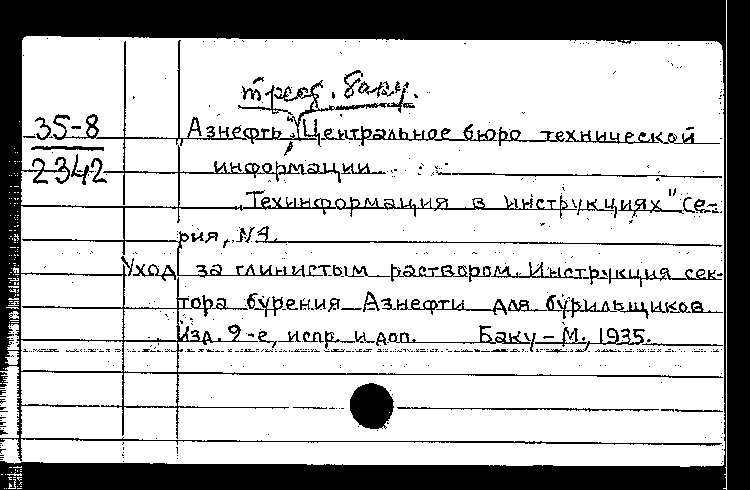 трест. Баку.
35-8
2342
„Азнефть", Центральное бюро технической
информации.
„Техинформация в инструкциях" Се-
рия, N4.
Уход за глинистым раствором. Инструкция сек-
тора бурения Азнефти для бурильщиков.
Изд. 9-е, испр. и доп. Баку – М., 1935.